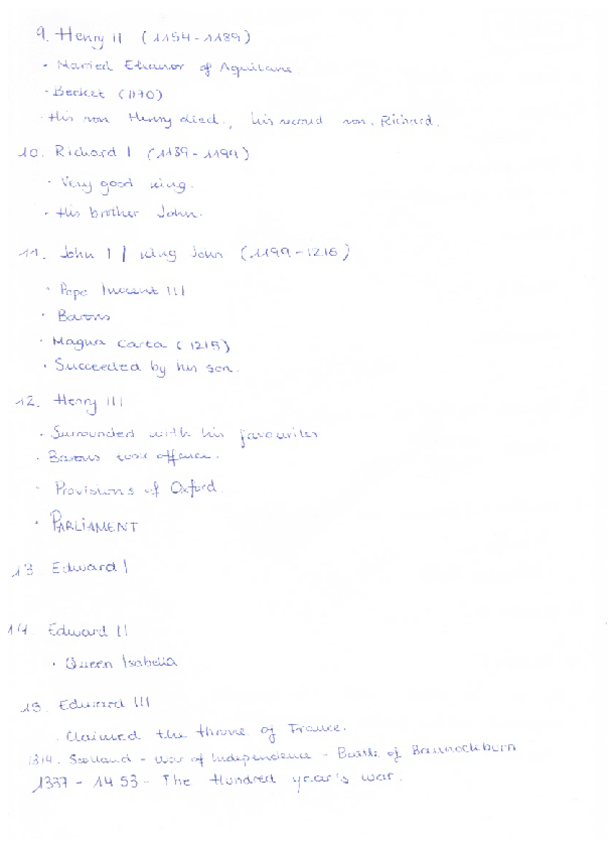 9. Henry II (1154-1189)
· Married Eleanor of Aquitane.
· Becket (1170)
· His son Henry died, his second son, Richard.
10. Richard I (1189-1199)
· Very good king.
· His brother John.
11. John I / King John (1199-1216)
· Pope Inocent III
· Barons
· Magna Carta (1215)
· Succeeded by his son.
12. Henry III
· Surrounded with his favourites
· Barons took offence.
· Provisions of Oxford.
· PARLIAMENT
13. Edward I
14. Edward II
· Queen Isabella
15. Edward III
· Claimed the throne of France.
1314. Scotland - War of Independence - Battle of Bannockburn
1337 - 1453 - The Hundred year's war.